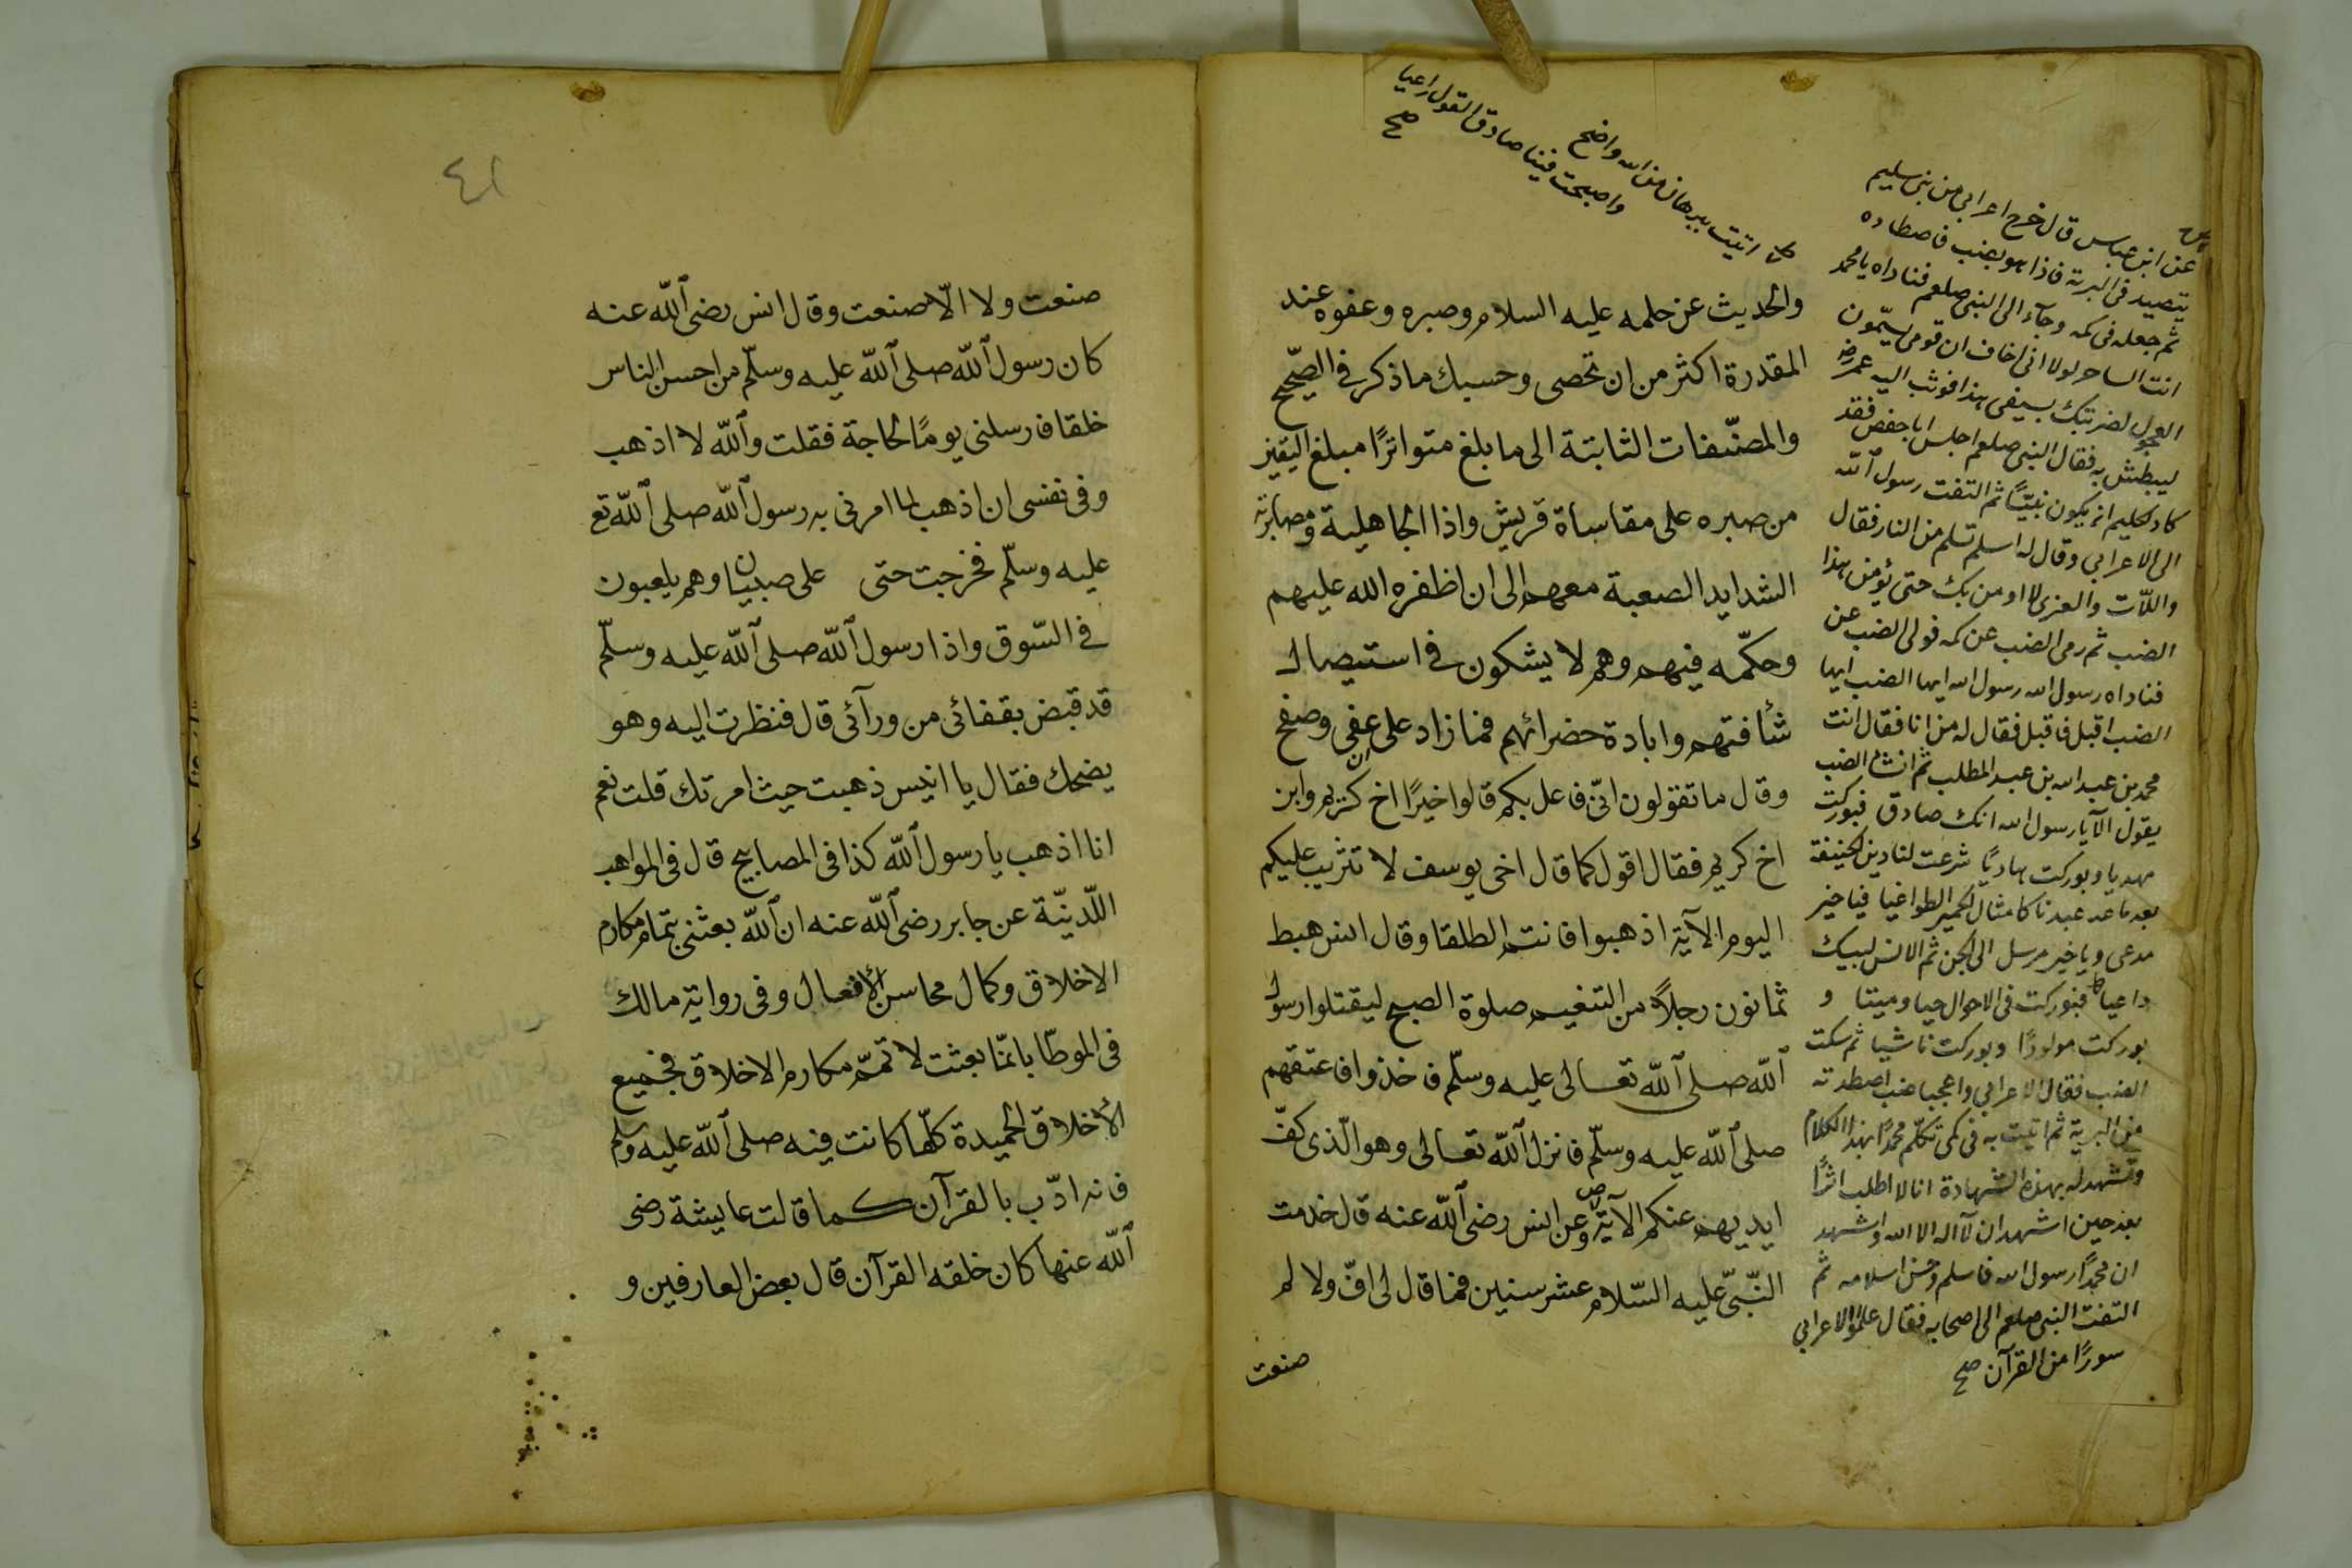 والحديث عن حلمه عليه السلام وصبره وعفوه عند
المقدرة اكثر من ان تحصى وحسبك ما ذكر في الصّحيح
والمصنّفات الثابتة الى ما بلغ متواترًا مبلغ اليقين
من صبره على مقاساة قريش واذا الجاهلية ومصابرته
الشدايد الصعبة معهم الى ان اظفره الله عليهم
وحكّمه فيهم وهم لا يشكون في استيصال
شأفتهم وابادة حضرائهم فما زاد على ان عفى وصفح
وقال ما تقولون انّى فاعل بكم قالوا خيرًا اخ كريم وابن
اخ كريم فقال اقول كما قال اخى يوسف لا تثريب عليكم
اليوم الآية اذهبوا فانتم الطلقا وقال انس هبط
ثمانون رجلاً من التنعيم صلوة الصبح ليقتلوا رسول
الله صلى الله تعالى عليه وسلّم فاخذوا فاعتقهم
صلى الله عليه وسلّم فانزل الله تعالى وهو الّذى كفّ
ايديهم عنكم الآية وعن انس رضى الله عنه قال خدمت
النّبىّ عليه السّلام عشر سنين فما قال لى افّ ولا لم
صنعت
عن ابن عباس قال خرج اعرابى من بنى سليم
يتصيد فى البرية فاذا هو بضب فاصطاده
ثم جعله فى كمه وجآء الى النبى صلعم فناداه يا محمد
انت الساحر لولا انى اخاف ان قومى يسمّون
العجول لضربتك بسيفى هذا فوثب اليه عمر رضه
ليبطش به فقال النبى صلعم اجلس ابا حفص فقد
كاد الحليم ان يكون نبيّاً ثم التفت رسول الله
الى الاعرابى وقال له اسلم تسلم من النار فقال
واللّات والعزى لا اومن بك حتى يؤمن هذا
الضب ثم رمى الضب عن كمه فولى الضب عن
فناداه رسول الله رسول الله ايها الضب ايها
الضب اقبل فاقبل فقال له من انا فقال انت
محمد بن عبد الله بن عبد المطلب ثم انشأ الضب
يقول الآ يا رسول الله انك صادق فبوركت
مهديا وبوركت هاديًا شرعت لنا دين الحنيفة
بعد ما عبدنا كامثال الحمير الطواغيا فيا خير
مدعى ويا خير مرسل الى الجن ثم الانس لبيك
داعيا فبوركت فى الاحوال حيا وميتا و
بوركت مولودًا وبوركت ناشيا ثم سكت
الضب فقال الاعرابى واعجبا ضب اصطدته
من البرية ثم اتيت به فى كمى تكلّم محمدًا بهذا الكلام
وتشهد له بهذه الشهادة انا لا اطلب اثرًا
بعد حين اشهد ان لآ اله الا الله واشهد
ان محمدًا رسول الله فاسلم وحسن اسلامه ثم
التفت النبى صلعم الى اصحابه فقال علموا الاعرابى
سورًا من القرآن صح
اتيت ببرهان من الله واضح
واصبحت فينا صادق القول راعيا
صح
٤١
صنعت ولا الّا صنعت وقال انس رضى الله عنه
كان رسول الله صلى الله عليه وسلّم من احسن الناس
خلقا فارسلنى يومًا لحاجة فقلت والله لا اذهب
وفى نفسى ان اذهب لما امرنى به رسول الله صلى الله تع
عليه وسلّم فخرجت حتى على صبيان وهم يلعبون
في السّوق واذا رسول الله صلى الله عليه وسلّم
قد قبض بقفائى من ورآئى قال فنظرت اليه وهو
يضحك فقال يا انيس ذهبت حيث امرتك قلت نعم
انا اذهب يا رسول الله كذا فى المصابيح قال فى المواهب
اللّدنيّة عن جابر رضى الله عنه ان الله بعثنى بتمام مكارم
الاخلاق وكمال محاسن الافعال وفى رواية مالك
فى الموطّا بانمّا بعثت لاتممّ مكارم الاخلاق فجميع
الأخلاق الحميدة كلّها كانت فيه صلى الله عليه وسلم
فانه ادّب بالقرآن كما قالت عايشة رضى
الله عنها كان خلقه القرآن قال بعض العارفين و